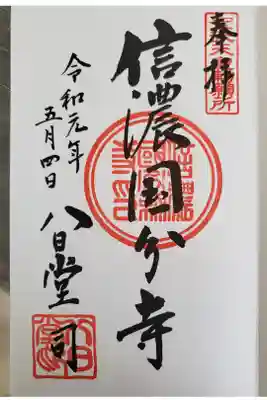 奉拝
信濃国分寺
令和元年
五月四日
八日堂
司